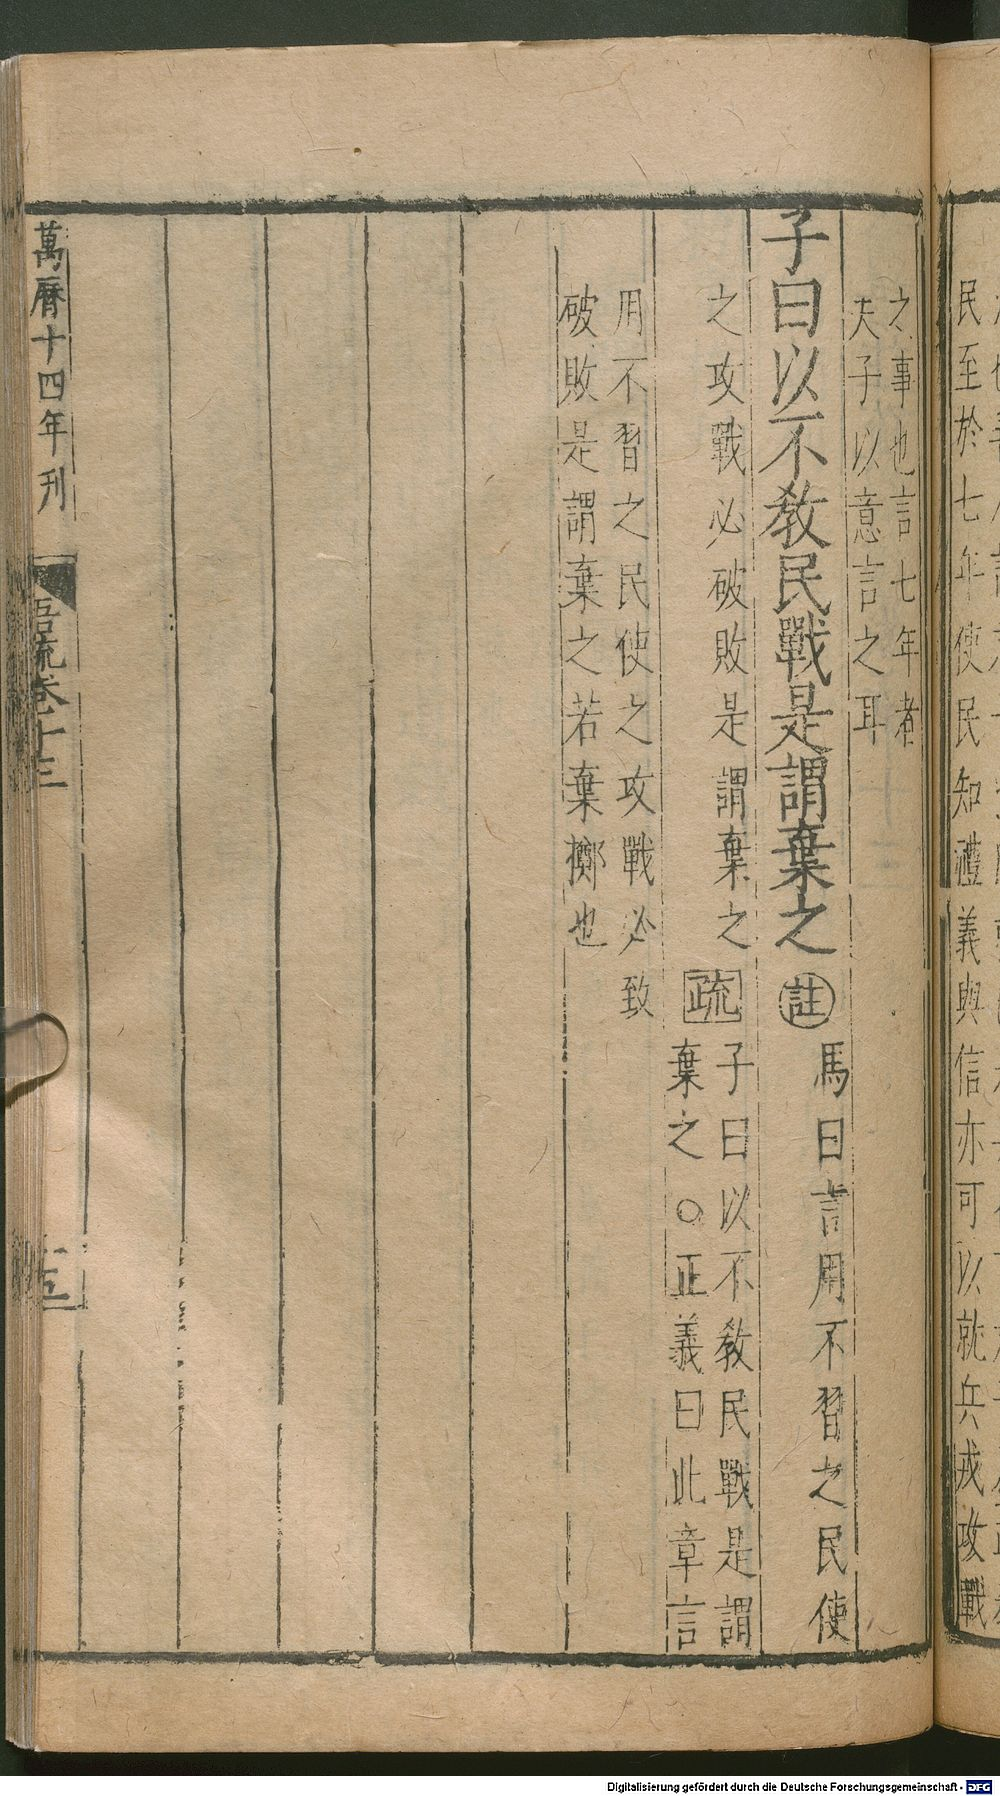 民至於七年使民知禮義與信亦可以就兵戎攻戰
之事也言七年者
夫子以意言之耳
子曰以不教民戰是謂棄之 註 馬曰言用不習之民使
之攻戰必破敗是謂棄之 疏 子曰以不教民戰是謂
棄之 ○正義曰此章言
用不習之民使之攻戰必致
破敗是謂棄之若棄擲也
萬曆十四年刊 語疏卷十三 十五
Digitalisierung gefördert durch die Deutsche Forschungsgemeinschaft - DFG